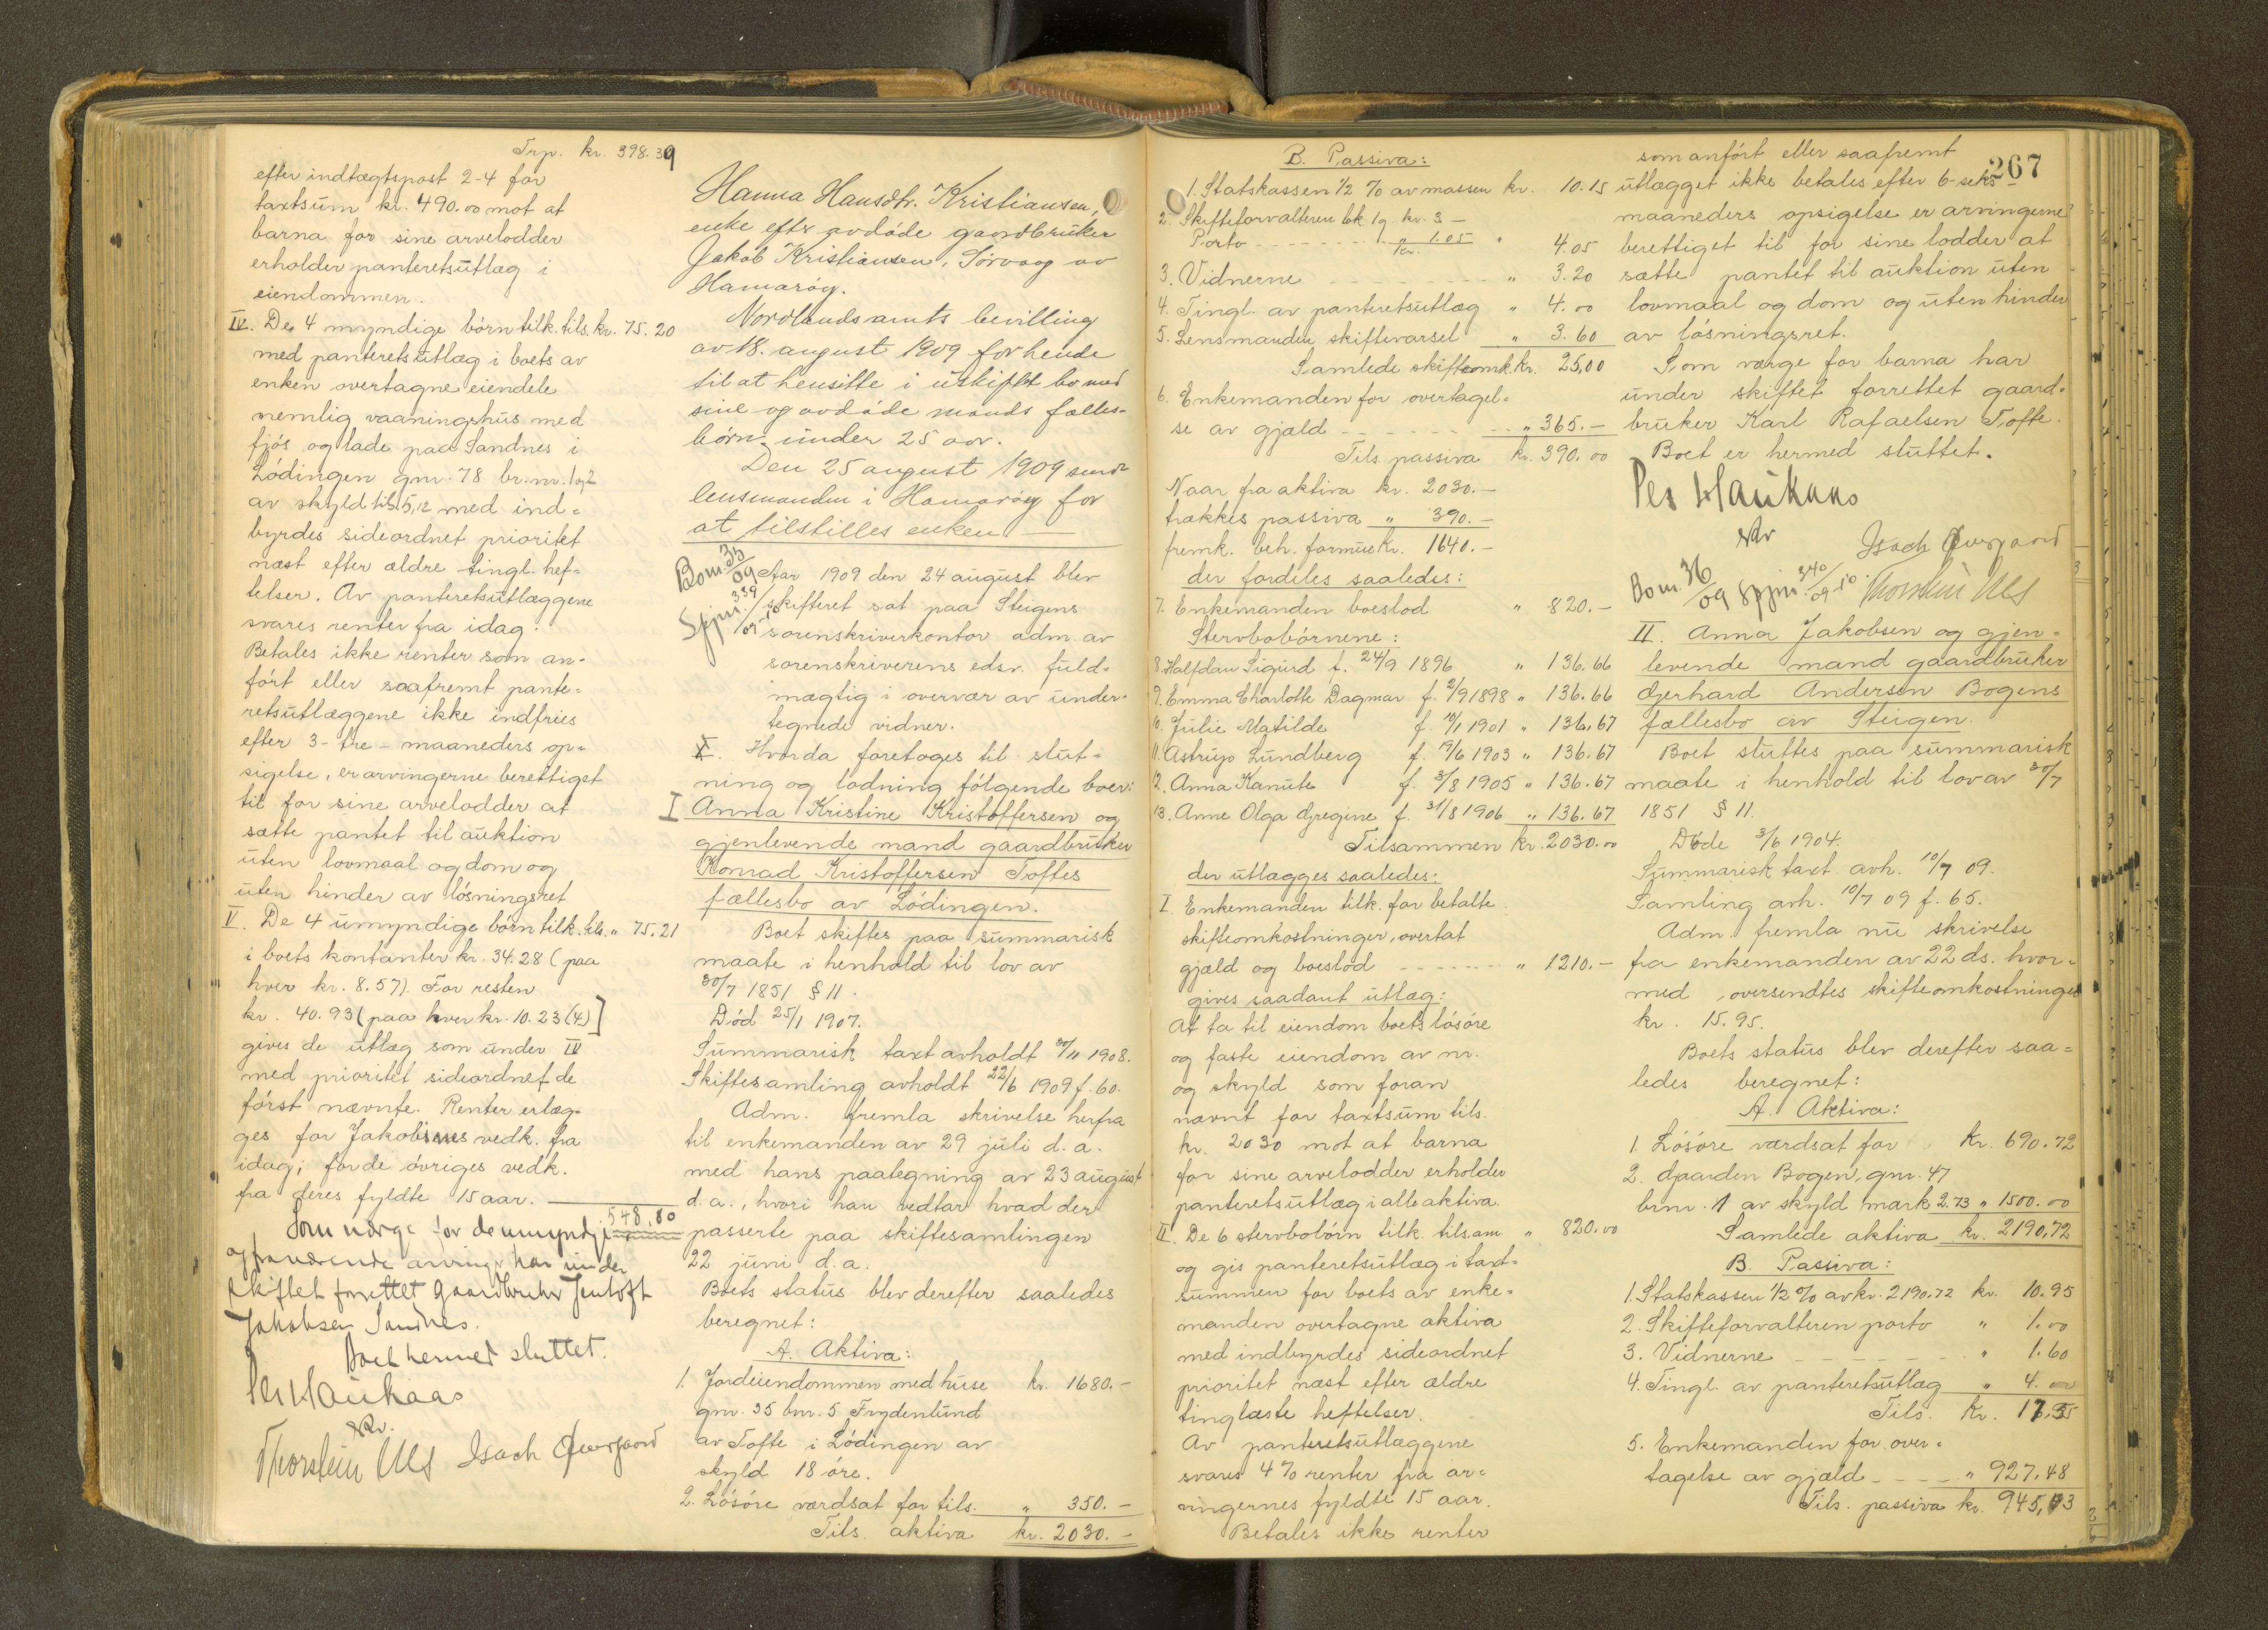 Trp. kr. 398.39
efter indtægtspost 2-4 for
taxtsum kr. 490.00 mot at
barna for sine arvelodder
erholder panteretsutlæg i
eiendommen.
IV. De 4 myndige börn tilk. tils. kr. 75.20
med panteretsutlæg i boets av
enken overtagne eiendele
nemlig vaaningshus med
fjös og lade paa Sandnes i
Lödingen gnr. 78 br.nr. 1 og 2
av skyld tils. 5,12 med ind=
byrdes sideordnet prioritet
næst efter ældre tingl. hef=
telser. Av panteretsutlæggene
svares renter fra idag.
Betales ikke renter som an=
fört eller saafremt pante=
retsutlæggene ikke indfries
efter 3- tre - maaneders op=
sigelse, er arvingerne berettiget
til for sine arvelodder at
sætte pantet til auktion
uten lovmaal og dom og
uten hinder av lösningsret
V. De 4 umyndige börn tilk. tils. " 75.21
i boets kontanter kr. 34.28 (paa
hver kr. 8.57). For resten
kr. 40.93 (paa hver kr. 10.23 (4)]
gives de utlæg som under IV
med prioritet sideordnet de
först nævnte. Renter erlæg=
ges for Jakobines vedk. fra
idag; for de övriges vedk.
fra deres fyldte 15 aar.
548.80
Som værge for de umyndige
og fraværende arvinger har under
skiftet forrettet gaardbruker Jentoft
Jakobsen Sandnes.
Boet hermed sluttet.
Per Haukaas
Thorstein Uls Isach Overgaard
Hanna Hansdtr. Kristiansen,
enke efter avdöde gaardbruker
Jakob Kristiansen, Sörvaag av
Hamaröy.
Nordlands amts bevilling
av 18. august 1909 for hende
til at hensitte i uskiftet bo med
sine og avdöde mands fælles=
börn under 25 aar.
Den 25 august 1909 sendt
lensmanden i Hamaröy for
at tilstilles enken
Bom. 35/09
Spjm. 339/09-10
Aar 1909 den 24 august blev
skifteret sat paa Steigens
sorenskriverkontor adm. av
sorenskriverens edsv. fuld=
mægtig i overvær av under=
tegnede vidner.
Hvorda foretoges til slut=
ning og lodning fölgende boer:
I Anna Kristine Kristoffersen og
gjenlevende mand gaardbruker
Konrad Kristoffersen Toftes
fællesbo av Lödingen.
Boet skiftes paa summarisk
maate i henhold til lov av
30/7 1851 § 11.
Död 25/1 1907.
Summarisk taxt avholdt 30/11 1908.
Skiftesamling avholdt 22/6 1909 f. 60.
Adm. fremla skrivelse herfra
til enkemanden av 29 juli d.a.
med hans paategning av 23 august
d.a., hvori han vedtar hvad der
passerte paa skiftesamlingen
22 juni d.a.
Boets status blev derefter saaledes
beregnet:
A. Aktiva:
1. Jordeiendommen med huse kr. 1680.-
gnr. 35 bnr. 5 Frydenlund
av Tofte i Lödingen av
skyld 18 öre.
2. Lösöre værdsat for tils. " 350.-
Tils. aktiva kr. 2030.-
B. Passiva:
1. Statskassen 1/2 % av massen kr. 10.15
2. Skifteforvalteren bk. 1g. kr. 3 -
Porto " 1.05 " 4.05
3. Vidnerne " 3.20
4. Tingl. av panteretsutlæg " 4.00
5. Lensmanden skiftevarsel " 3.60
Samlede skifteomk. kr. 25,00
6. Enkemanden for overtagel=
se av gjæld " 365.-
Tils. passiva kr. 390.00
Naar fra aktiva kr. 2030.-
trækkes passiva " 390.-
fremk. beh. formue kr. 1640.-
der fordeles saaledes:
7. Enkemanden boeslod " 820.-
Stervbobörnene:
8. Halfdan Sigurd f. 24/9 1896 " 136.66
9. Emma Charlotte Dagmar f. 2/9 1898 " 136.66
10. Julie Matilde f. 10/1 1901 " 136.67
11. Astrup Lundberg f. 19/6 1903 " 136.67
12. Anna Kanute f. 3/8 1905 " 136.67
13. Anne Olga Gregine f. 31/8 1906 " 136.67
Tilsammen kr. 2030.00
der utlægges saaledes:
I. Enkemanden tilk. for betalte
skifteomkostninger, overtat
gjæld og boeslod " 1210.-
gives saadant utlæg:
At ta til eiendom boets lösöre
og faste eiendom av nr.
og skyld som foran
nævnt for taxtsum tils.
kr. 2030 mot at barna
for sine arvelodder erholder
panteretsutlæg i alle aktiva.
II. De 6 stervbobörn tilk. tilsam. " 820.00
og gis panteretsutlæg i taxt=
summen for boets av enke=
manden overtagne aktiva
med indbyrdes sideordnet
prioritet næst efter ældre
tinglæste heftelser.
Av panteretsutlæggene
svares 4% renter fra ar=
vingernes fyldte 15 aar.
Betales ikke renter
267
som anfört eller saafremt
utlægget ikke betales efter 6-seks-
maaneders opsigelse er arvingerne
berettiget til for sine lodder at
sætte pantet til auktion uten
lovmaal og dom og uten hinder
av lösningsret.
Som værge for barna har
under skiftet forrettet gaard=
bruker Karl Rafaelsen Tofte.
Boet er hermed sluttet.
Per Haukaas
Isach Overgaard
Thorstein Uls
Bom. 36/09 Spjm. 340/09-10
II. Anna Jakobsen og gjen=
levende mand gaardbruker
Gjerhard Andersen Bogens
fællesbo av Steigen.
Boet sluttes paa summarisk
maate i henhold til lov av 30/7
1851 § 11.
Döde 3/6 1904.
Summarisk taxt avh. 10/7 09.
Samling avh. 10/7 09 f. 65.
Adm. fremla nu skrivelse
fra enkemanden av 22 ds. hvor=
med oversendtes skifteomkostninger
kr. 15.95.
Boets status blev derefter saa=
ledes beregnet:
A. Aktiva:
1. Lösöre værdsat for kr. 690.72
2. Gaarden Bogen, gnr. 47
brnr. 1 av skyld mark 2.73 " 1500.00
Samlede aktiva kr. 2190,72
B. Passiva:
1. Statskassen 1/2 % av kr. 2190.72 kr. 10.95
2. Skifteforvalteren porto " 1.00
3. Vidnerne " 1.60
4. Tingl. av panteretsutlæg " 4.00
Tils. kr. 17,55
5. Enkemanden for over=
tagelse av gjæld " 927,48
Tils. passiva kr. 945,03